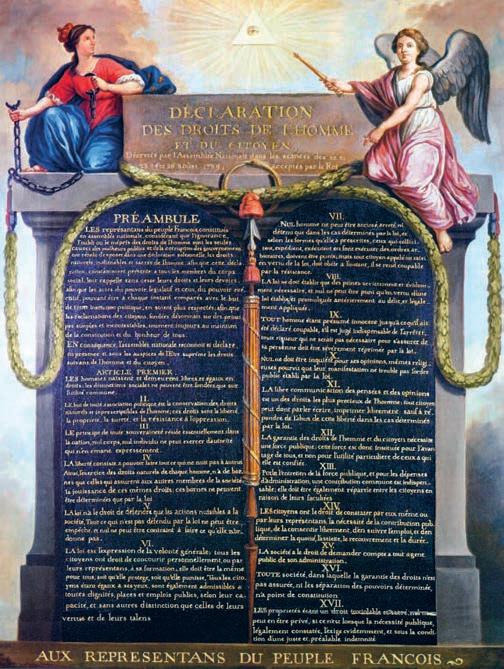 DÉCLARATION
DES DROITS DE L'HOMME
ET DU CITOYEN,
Décrétés par l'Assemblée Nationale dans les séances des
acceptés par le Roi
PRÉAMBULE
LES représentans du peuple François constitués
en assemblée nationale, considérant que l'ignorance,
l'oubli ou le mépris des droits de l'homme sont les seules
causes des malheurs publics et de la corruption des gouvernemens
ont résolu d'exposer dans une déclaration solemnelle, les droits
naturels, inaliénables et sacrés de l'homme; afin que cette décla-
ration, constamment présente à tous les membres du corps
social, leur rappelle sans cesse leurs droits et leurs devoirs;
afin que les actes du pouvoir législatif et ceux du pouvoir exé-
cutif, pouvant être à chaque instant comparés avec le but
de toute institution politique, en soient plus respectés; afin que
les réclamations des citoyens, fondées désormais sur des prin-
cipes simples et incontestables, tournent toujours au maintien
de la constitution et du bonheur de tous.
EN conséquence, l'assemblée nationale reconnoit et déclare,
en présence et sous les auspices de l'Etre suprême les droits
suivans de l'homme et du citoyen.
ARTICLE PREMIER.
LES hommes naissent et demeurent libres et égaux en
droits; les distinctions sociales ne peuvent être fondées que sur
l'utilité commune.
II.
LE but de toute association politique est la conservation des droits
naturels et imprescriptibles de l'homme; ces droits sont la liberté,
la propriété, la sureté, et la résistance à l'oppression.
III.
LE principe de toute souveraineté réside essentiellement dans
la nation, nul corps, nul individu ne peut exercer d'autorité
qui n'en émane expressement.
IV.
LA liberté consiste à pouvoir faire tout ce qui ne nuit pas à autrui
Ainsi, l'exercice des droits naturels de chaque homme, n'a de bor-
nes que celles qui assurent aux autres membres de la société
la jouissance de ces mêmes droits; ces bornes ne peuvent
être déterminées que par la loi
V.
LA loi n'a le droit de défendre que les actions nuisibles à la
société. Tout ce qui n'est pas défendu par la loi ne peut être
empêché, et nul ne peut être contraint à faire ce qu'elle n'or-
donne pas.
VI.
LA loi est l'expression de la volonté générale; tous les
citoyens ont droit de concourir personnellement, ou par
leurs représentans, à sa formation; elle doit être la même
pour tous, soit qu'elle protege, soit qu'elle punisse. Tous les cito-
yens étant égaux à ses yeux, sont également admissibles à
toutes dignités, places et emplois publics, selon leur ca-
pacité, et sans autres distinction que celles de leurs
vertus et de leurs talens
VII.
NUL homme ne peut être accusé, arrêté, ni
détenu que dans les cas déterminés par la loi, et
selon les formes qu'elle a prescrites, ceux qui sollici-
tent, expédient, exécutent ou font exécuter des ordres ar-
bitraires, doivent être punis; mais tout citoyen appelé ou saisi
en vertu de la loi, doit obéir à l'instant, il se rend coupable
par la résistance.
VIII.
LA loi ne doit établir que des peines strictement et évidem-
ment nécessaire, et nul ne peut être puni qu'en vertu d'une
loi établie et promulguée antérieurement au délit, et légale-
ment appliquée.
IX.
TOUT homme étant présumé innocent jusqu'à ce qu'il ait
été déclaré coupable, s'il est jugé indispensable de l'arrêter,
toute rigueur qui ne seroit pas nécessaire pour s'assurer de
sa personne doit être sévèrement réprimée par la loi.
X.
NUL ne doit être inquiété pour ses opinions, mêmes religi-
euses pourvu que leur manifestation ne trouble pas l'ordre
public établi par la loi.
XI.
LA libre communication des pensées et des opinions
est un des droits les plus précieux de l'homme; tout citoyen
peut donc parler, écrire, imprimer librement: sauf à ré-
pondre de l'abus de cette liberté dans les cas déterminés
par la loi.
XII.
LA garantie des droits de l'homme et du citoyen nécessite
une force publique; cette force est donc instituée pour l'avan-
tage de tous, et non pour l'utilité particuliere de ceux à qui
elle est confiée.
XIII.
POUR l'entretien de la force publique, et pour les dépenses
d'administration, une contribution commune est indispen-
sable; elle doit être également répartie entre les citoyens en
raison de leurs facultées
XIV.
LES citoyens ont le droit de constater par eux même ou
par leurs représentans, la nécessité de la contribution pub-
lique, de la consentir librement, d'en suivre l'emploi, et d'en
déterminer la quotité, l'assiette, le recouvrement et la durée.
XV.
LA société a le droit de demander compte à tout agent
public de son administration.
XVI.
TOUTE société, dans laquelle la garantie des droits n'est
pas assurée, ni les séparation des pouvoirs déterminée,
n'a point de constitution.
XVII.
LES propriétés étant un droit inviolable et sacré, nul ne
peut en être privé, si ce n'est lorsque la nécessité publique,
légalement constatée, l'exige évidemment, et sous la condi-
tion d'une juste et préalable indemnité
AUX REPRESENTANS DU PEUPLE FRANCOIS